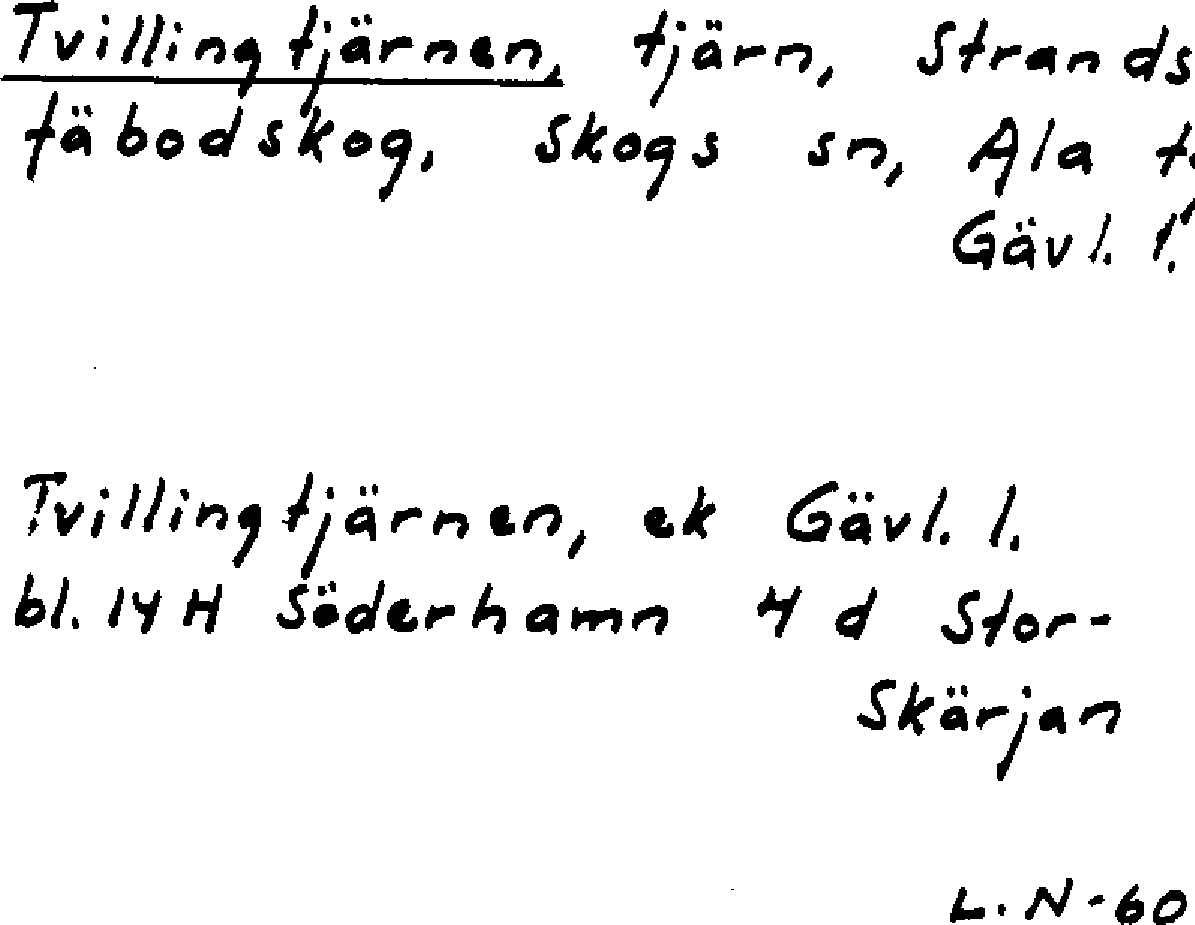 Tvillingtjärnen, tjärn, Strands
fäbodskog, Skogs sn, Ala t.
Gävl. l.
Tvillingtjärnen, ek Gävl. l.
bl. 14 H Söderhamn 4 d Stor-
Skärjan
L. N-60